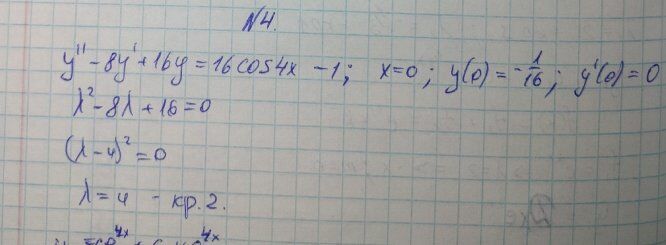 №4.
y'' - 8y' + 16y = 16cos4x - 1; x=0; y(0) = -1/16; y'(0) = 0
λ² - 8λ + 16 = 0
(λ - 4)² = 0
λ = 4 - кр. 2.